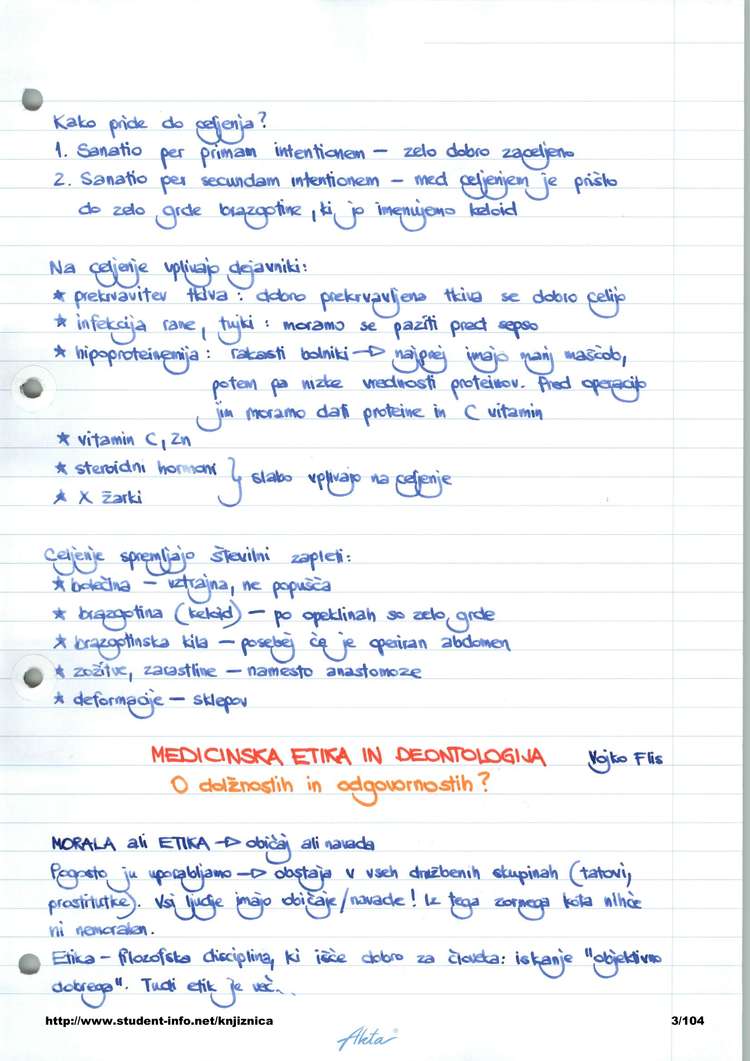 Kako pride do celjenja?
1. Sanatio per primam intentionem – zelo dobro zaceljeno
2. Sanatio per secundam intentionem – med celjenjem je prišlo
do zelo grde brazgotine, ki jo imenujemo keloid
Na celjenje vplivajo dejavniki:
* prekrvavitev tkiva: dobro prekrvavljena tkiva se dobro celijo
* infekcija rane, tujki: moramo se paziti pred sepso
* hipoproteinemija: rakasti bolniki → najprej imajo manj maščob,
potem pa nizke vrednosti proteinov. Pred operacijo
jim moramo dati proteine in C vitamin
* vitamin C, Zn
* steroidni hormoni } slabo vplivajo na celjenje
* X žarki
Celjenje spremljajo številni zapleti:
* bolečina – vztrajna, ne popušča
* brazgotina (keloid) – po opeklinah so zelo grde
* brazgotinska kila – posebej če je operiran abdomen
* zožitve, zarastline – namesto anastomoze
* deformacije – sklepov
MEDICINSKA ETIKA IN DEONTOLOGIJA Vojko Flis
O dolžnostih in odgovornostih?
MORALA ali ETIKA → običaj ali navada
Pogosto ju uporabljamo → obstaja v vseh družbenih skupinah (tatovi,
prostitutke). Vsi ljudje imajo običaje/navade! Iz tega zornega kota nihče
ni nemoralen.
Etika – filozofska disciplina, ki išče dobro za človeka: iskanje "objektivno
dobrega". Tudi etik je več...
http://www.student-info.net/knjiznica 3/104
Akta®